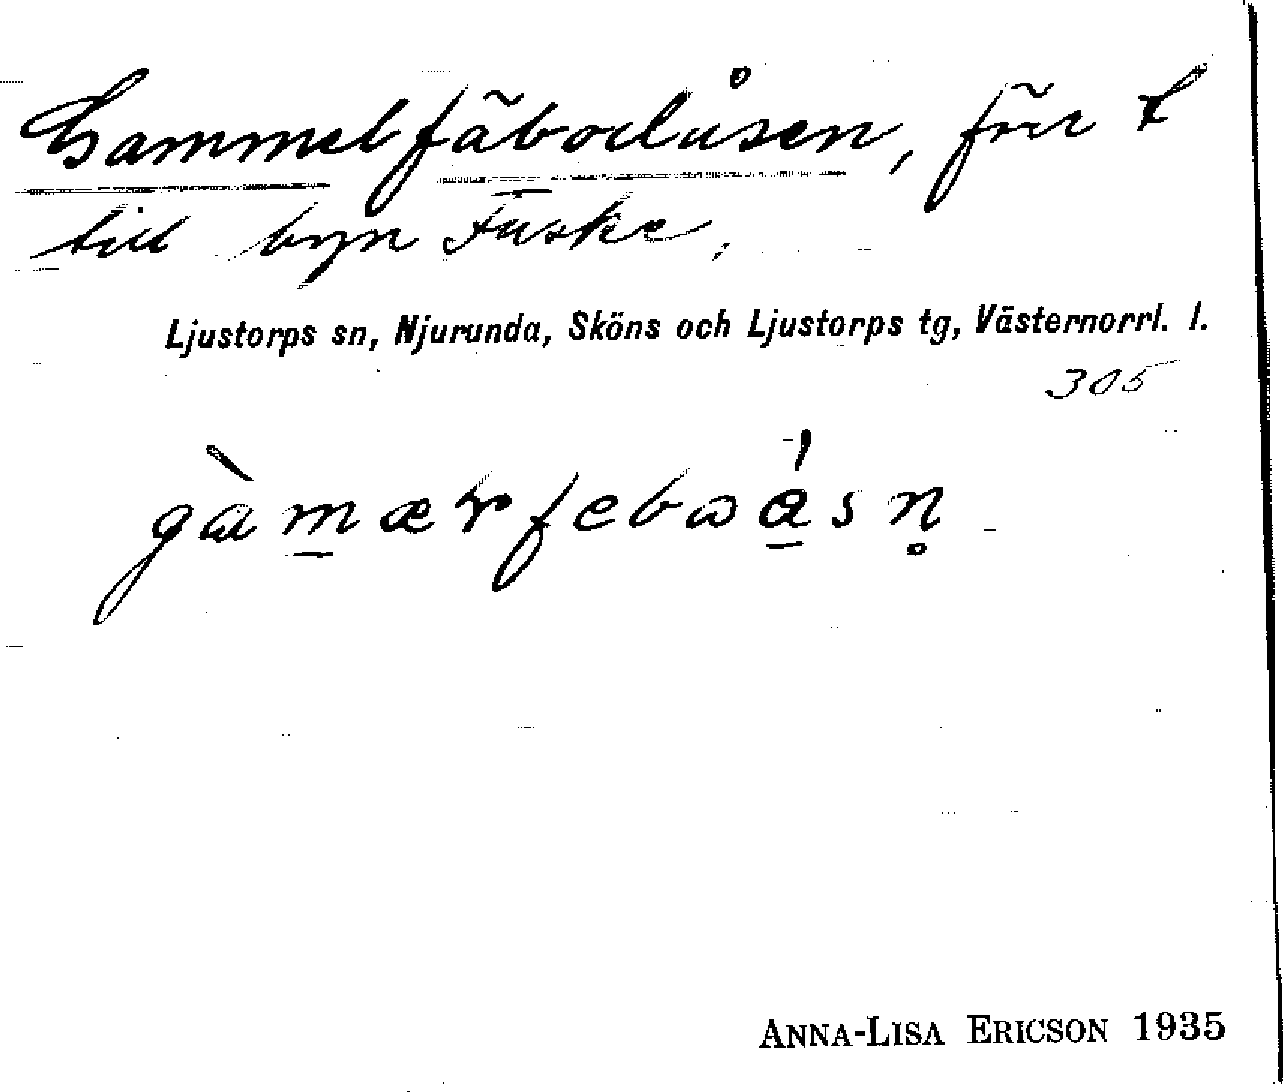 Gammelfäbodåsen, förr f
till byn Fuske.
Ljustorps sn, Njurunda, Sköns och Ljustorps tg, Västernorrl. l.
305
gàmærfeboásn̥
ANNA-LISA ERICSON 1935